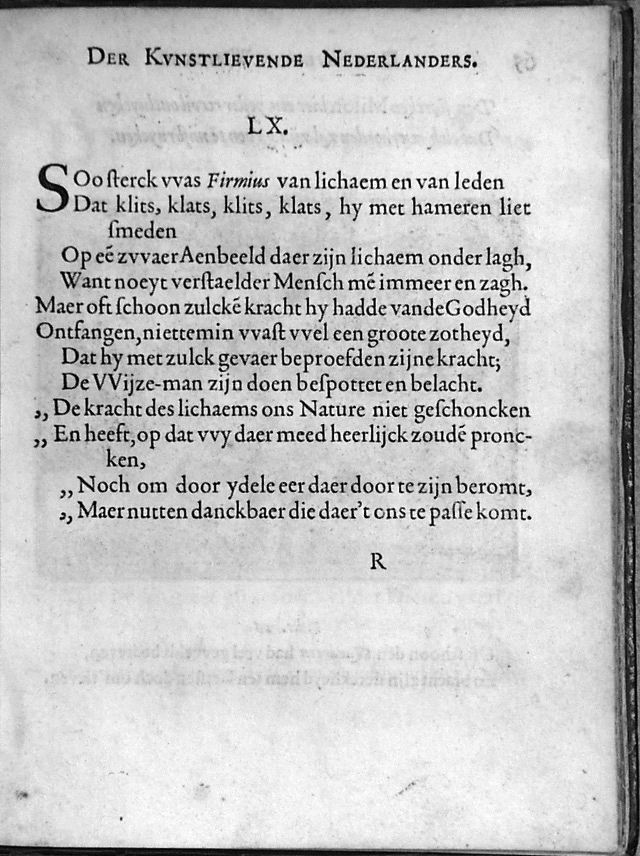 DER KVNSTLIEVENDE NEDERLANDERS.
LX.
SOo ſterck vvas Firmius van lichaem en van leden
Dat klits, klats, klits, klats, hy met hameren liet
ſmeden
Op eē zvvaer Aenbeeld daer zijn lichaem onder lagh,
Want noeyt verſtaelder Menſch mē immeer en zagh.
Maer oft ſchoon zulckē kracht hy hadde vande Godheyd
Ontfangen, niettemin vvaſt vvel een groote zotheyd,
Dat hy met zulck gevaer beproefden zijne kracht;
De VVijze-man zijn doen beſpottet en belacht.
,, De kracht des lichaems ons Nature niet geſchoncken
,, En heeft, op dat vvy daer meed heerlijck zoudē pronc-
ken,
,, Noch om door ydele eer daer door te zijn beromt,
,, Maer nutten danckbaer die daer't ons te paſſe komt.
R